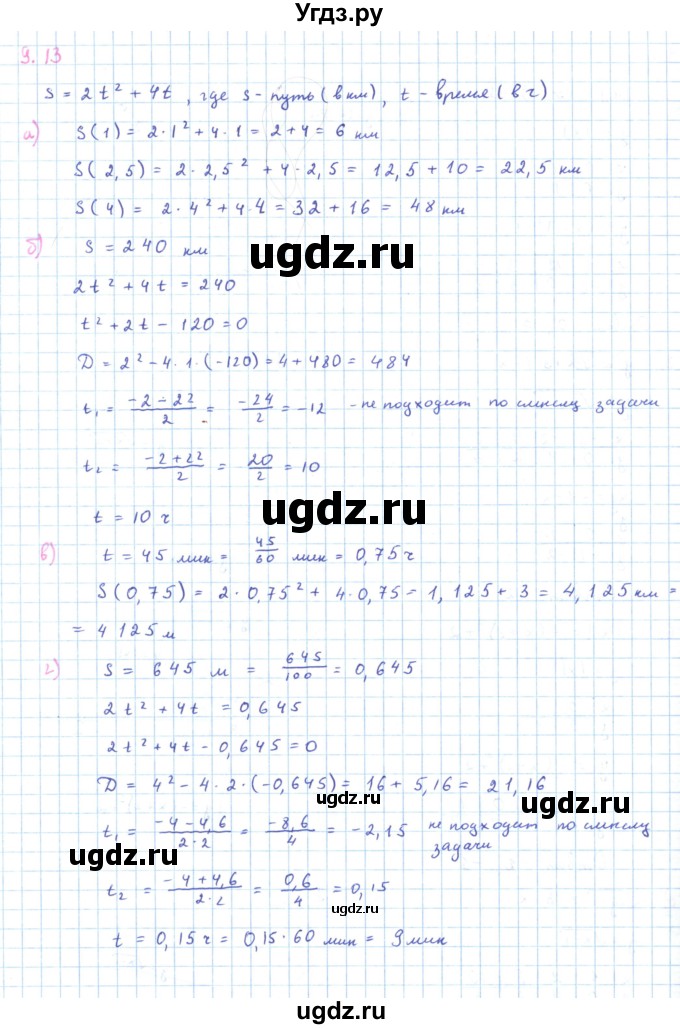 Угдз.ру
9.13
S = 2t² + 4t, где s - путь (в км), t - время (в ч)
а) S(1) = 2·1² + 4·1 = 2+4 = 6 км
S(2,5) = 2·2,5² + 4·2,5 = 12,5 + 10 = 22,5 км
S(4) = 2·4² + 4·4 = 32 + 16 = 48 км
б) S = 240 км
ugdz.ru
2t² + 4t = 240
t² + 2t - 120 = 0
D = 2² - 4·1·(-120) = 4 + 480 = 484
t₁ = (-2-22)/2 = -24/2 = -12 - не подходит по смыслу задачи
t₂ = (-2+22)/2 = 20/2 = 10
ugdz.ru
t = 10 ч
в) t = 45 мин = 45/60 мин = 0,75 ч
S(0,75) = 2·0,75² + 4·0,75 = 1,125 + 3 = 4,125 км =
= 4125 м
ugdz.ru
г) S = 645 м = 645/100 = 0,645
2t² + 4t = 0,645
2t² + 4t - 0,645 = 0
D = 4² - 4·2·(-0,645) = 16 + 5,16 = 21,16
ugdz.ru
t₁ = (-4-4,6)/(2·2) = -8,6/4 = -2,15 не подходит по смыслу
задачи
ugdz.ru
ugdz.ru
t₂ = (-4+4,6)/(2·2) = 0,6/4 = 0,15
ugdz.ru
t = 0,15 ч = 0,15·60 мин = 9 мин
ugdz.ru
ugdz.ru